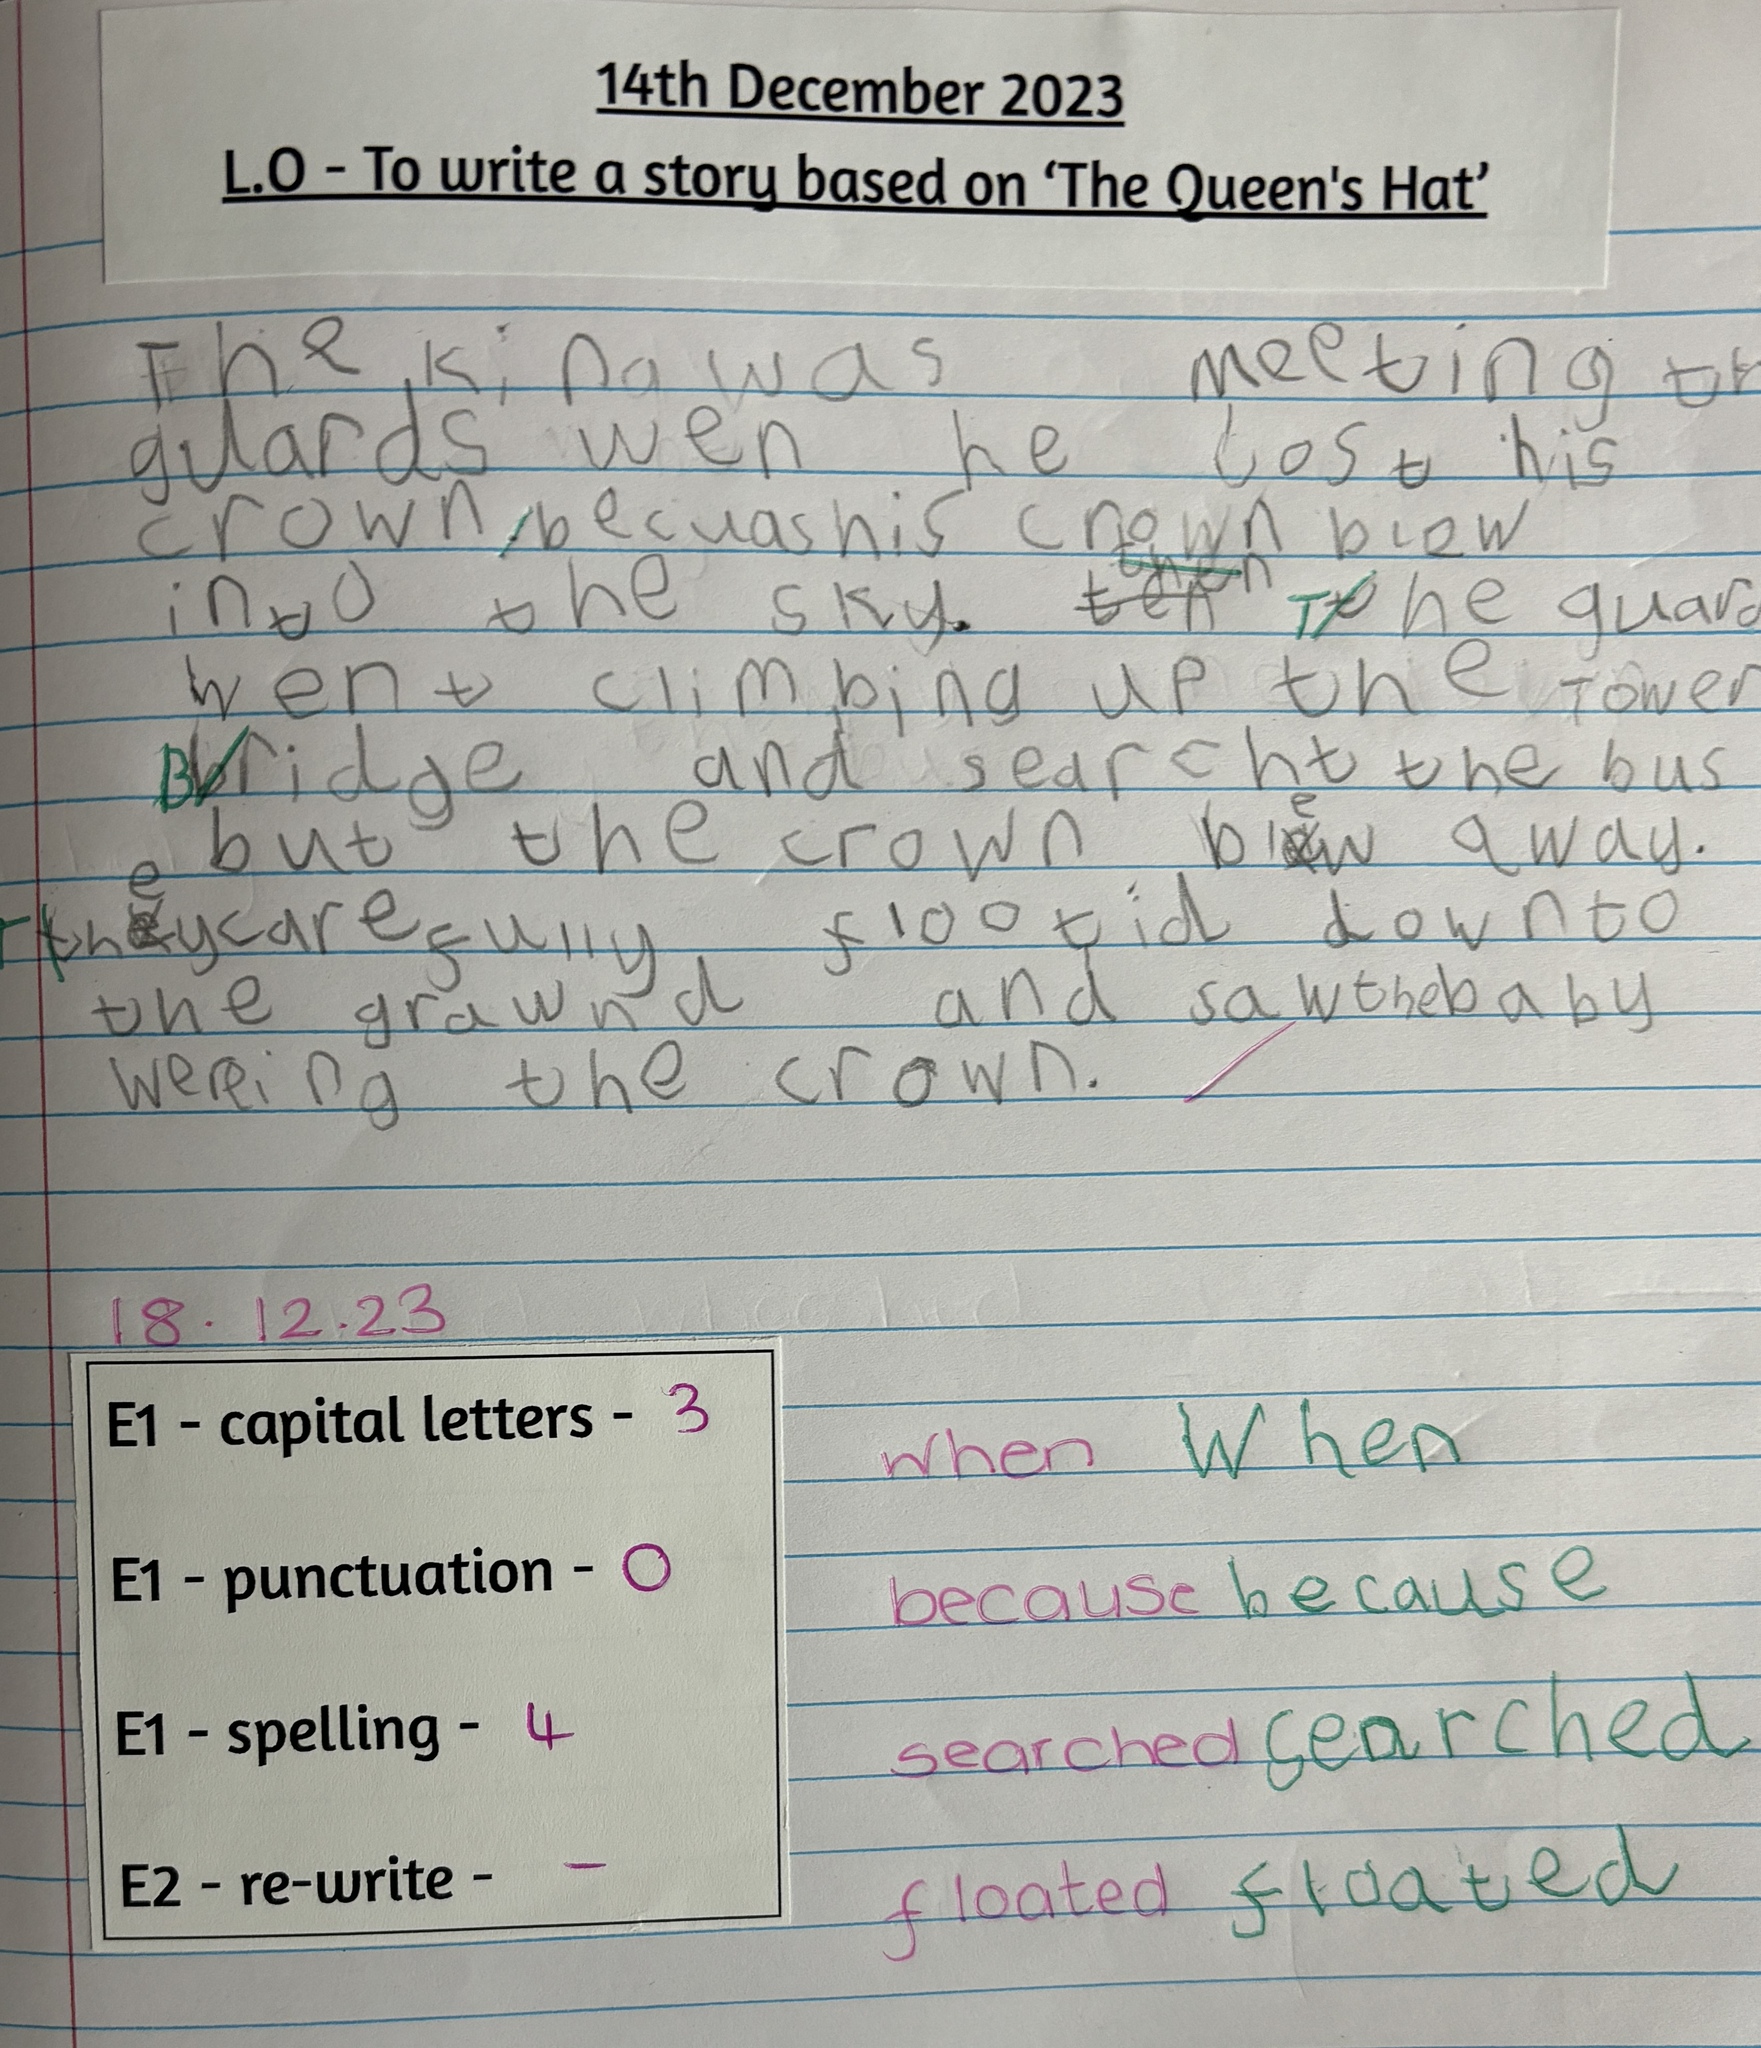 14th December 2023
L.O - To write a story based on ‘The Queen's Hat’
The king was meeting th
guards wen he lost his
crown, becuas his crown blew
into the sky. ten then The guard
went climbing up the Tower
Bridge and searcht the bus
but the crown blew away.
They carefully flootid down to
the grawnd and saw the baby
wereing the crown.
18.12.23
E1 - capital letters - 3
E1 - punctuation - 0
E1 - spelling - 4
E2 - re-write - –
when When
because because
searched searched
floated floated